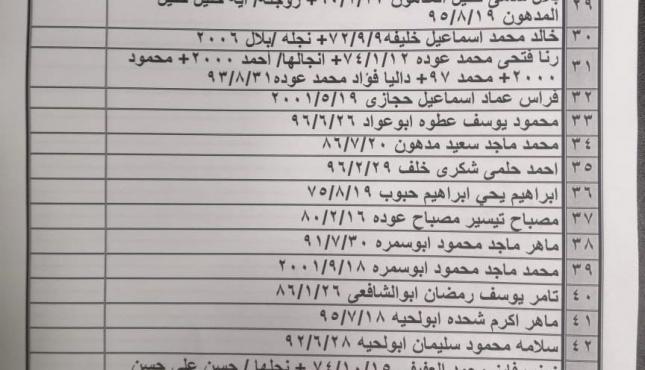 ٢٩
المدهون ٩٥/٨/١٩
٣٠ خالد محمد اسماعيل خليفه ٧٢/٩/٩+ نجله /بلال ٢٠٠٦
٣١ رنا فتحى محمد عوده ٧٤/١/١٢+ انجالها/ احمد ٢٠٠٠+ محمود
٢٠٠٠+ محمد ٩٧+ داليا فؤاد محمد عوده ٩٣/٨/٣١
٣٢ فراس عماد اسماعيل حجازى ٢٠٠١/٥/١٩
٣٣ محمود يوسف عطوه ابوعواد ٩٦/٦/٢٦
٣٤ محمد ماجد سعيد مدهون ٨٦/٧/٢٠
٣٥ احمد حلمى شكرى خلف ٩٦/٢/٢٩
٣٦ ابراهيم يحي ابراهيم حبوب ٧٥/٨/١٩
٣٧ مصباح تيسير مصباح عوده ٨٠/٢/١٦
٣٨ ماهر ماجد محمود ابوسمره ٩١/٧/٣٠
٣٩ محمد ماجد محمود ابوسمره ٢٠٠١/٩/١٨
٤٠ تامر يوسف رمضان ابوالشافعي ٨٦/١/٢٦
٤١ ماهر اكرم شحده ابولحيه ٩٥/٧/١٨
٤٢ سلامه محمود سليمان ابولحيه ٩٢/٦/٢٨
٧٤/١٠/١٥ + نجلها / حسن علي حسن